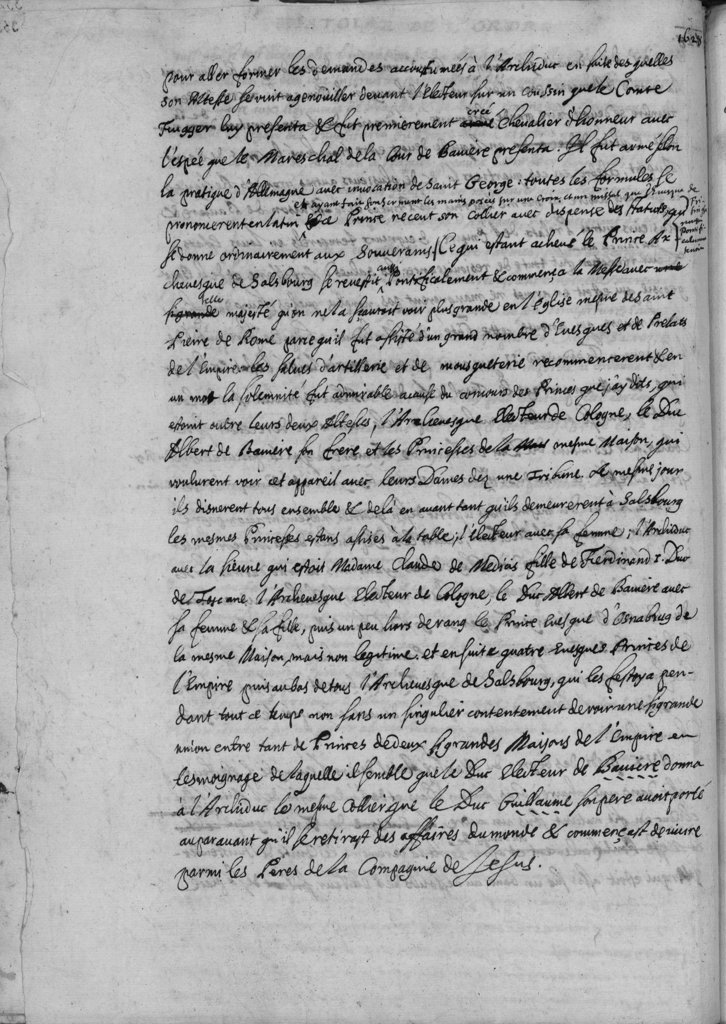 1628
pour aller former les demandes accoustumées à l'Archiduc en suite des quelles
son Altesse se vint agenouiller devant l'Electeur sur un coussin que le Comte
Fugger luy presenta & fut premierement creé Chevalier d'honneur avec
l'espée que le Mareschal de la Cour de Baviere presenta. Il fut armé selon
la pratique d'Allemagne avec invocation de Saint George: toutes les formules se
et ayant fait son serment les mains posées sur une croix et un missal que l'Evesque de
prononcerent en latin & ce Prince receut son collier avec dispense des statuts, qui
se donne ordinairement aux Souverains. Ce qui estant achevé le Prince Ar
chevesque de Salsbourg se revestit aussi Pontificalement & commença la Messe avec
telle majesté qu'on ne la sçauroit voir plus grande en l'Eglise mesme de saint
Pierre de Rome parce qu'il fut assisté d'un grand nombre d'Evesques et de Prelats
de l'Empire. les salves d'artillerie et de mousqueterie recommencerent & en
un mot la solemnité fut admirable acause du concours des Princes que j'ay dits, qui
estoient outre leurs deux Altesses, l'Archevesque Electeur de Cologne, le Duc
Albert de Baviere son frere et les Princesses de la mesme Maison, qui
voulurent voir cet appareil avec leurs Dames dez une Tribune. Ce mesme jour
ils disnerent tous ensemble & delà en avant tant qu'ils demeurerent à Salsbourg
les mesmes Princesses estans assises à la table; l'Electeur avec sa femme; l'Archiduc
avec la sienne qui estoit Madame Claude de Medicis fille de Ferdinand 1. Duc
de Toscane l'Archevesque Electeur de Cologne, le Duc Albert de Baviere avec
sa femme & sa fille, puis un peu hors de rang le Prince Evesque d'Osnabrug de
la mesme Maison, mais non legitime. et en suite quatre Evesques Princes de
l'Empire puis au bas de tous l'Archevesque de Salsbourg, qui les festoya pen-
dant tout ce temps non sans un singulier contentement de voir une si grande
union entre tant de Princes de deux si grandes Maisons de l'Empire en
tesmoignage de laquelle il semble que le Duc Electeur de Baviere donna
à l'Archiduc le mesme collier que le Duc Guillaume son pere avoit porté
auparavant qu'il se retirast des affaires du monde & commençast de vivre
parmi les Peres de la Compagnie de Jesus.